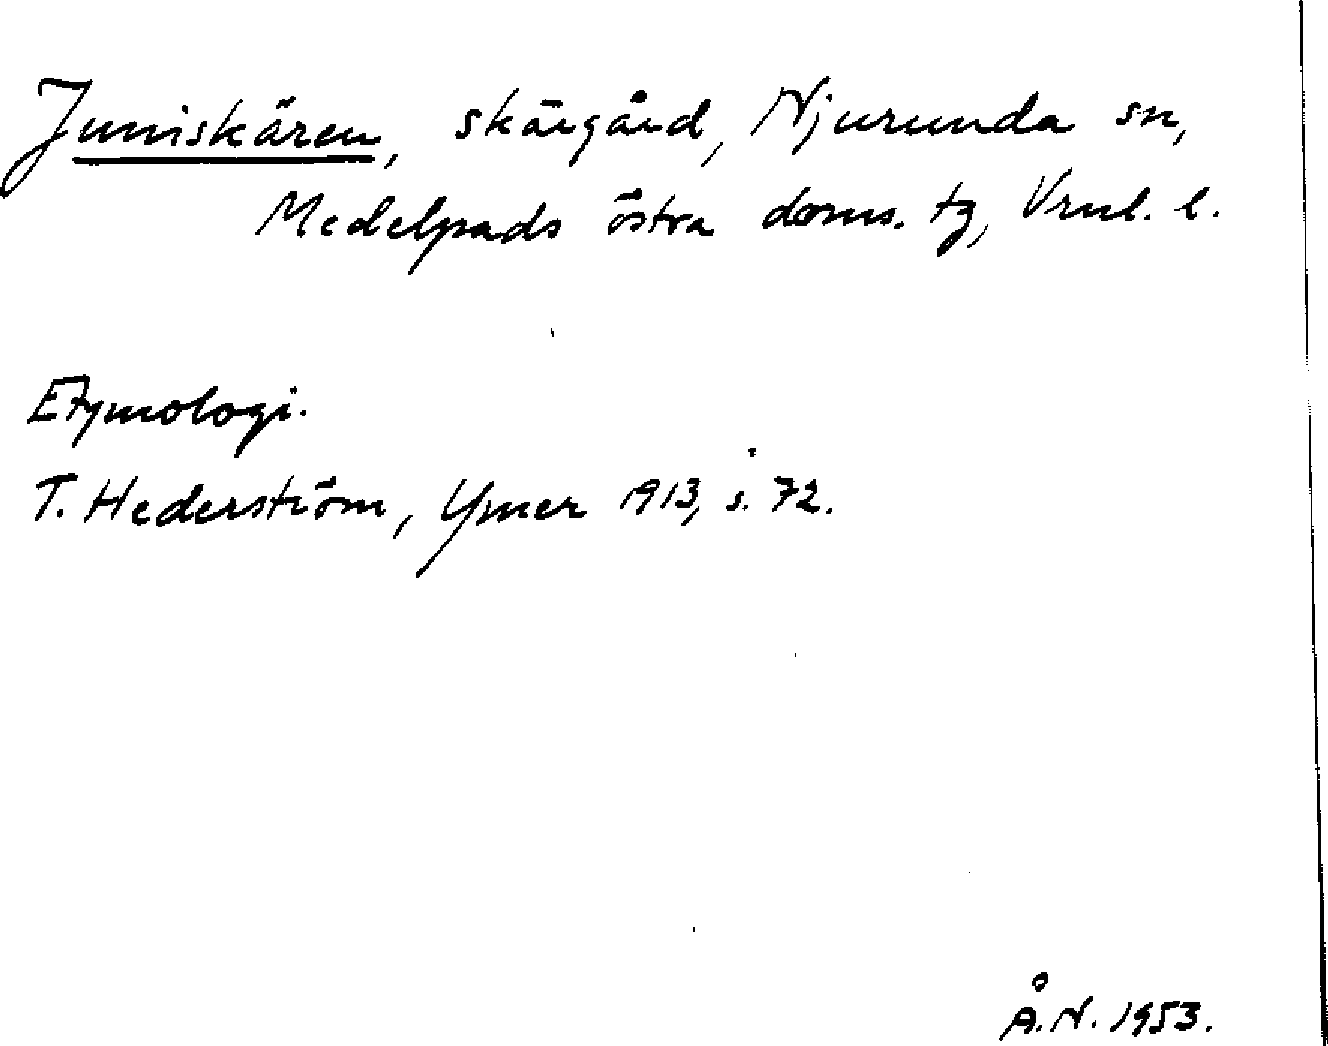 Juniskären, skärgård, Njurunda sn,
Medelpads östra doms. tg, Vrnl. l.
Etymologi.
T. Hederström, Ymer 1913, s. 72.
Å.N. 1953.